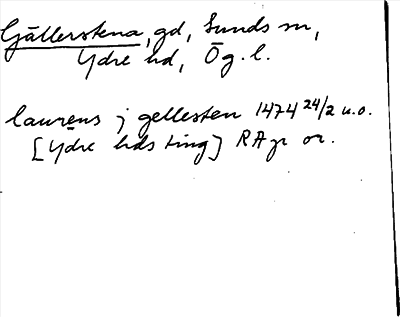 Gällerstena, gd, Sunds sn,
Ydre hd, Ög. l.
laurens j gellesten 1474 24/2 u.o.
[Ydre hds ting] RAp or.